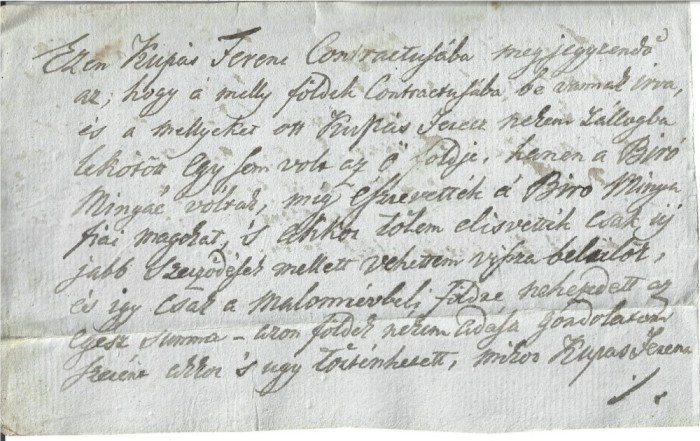 Ezen Kupás Ferenc Contractusába megjegyzendő
az, hogy á melly földek Contractusába bé vannak irva,
és a mellyeket ott Kupás Ferencz nékem Zállogba
lekötött egy sem volt az ő földje, hanem a Biró
Minyáé vóltak, mig észrevették á Biró Minya
fiai magokat, 's akkor tőlem elisvették Csak új
jabb Szerződések mellett vehettem viszsza belőlök,
és igy Csak a Malomiévbéli földre nehezedett az
egész summa – azon földek nékem adása gondolatom
szerént akkor 's ugy történhetett, mikor Kupas Ferenc
./.